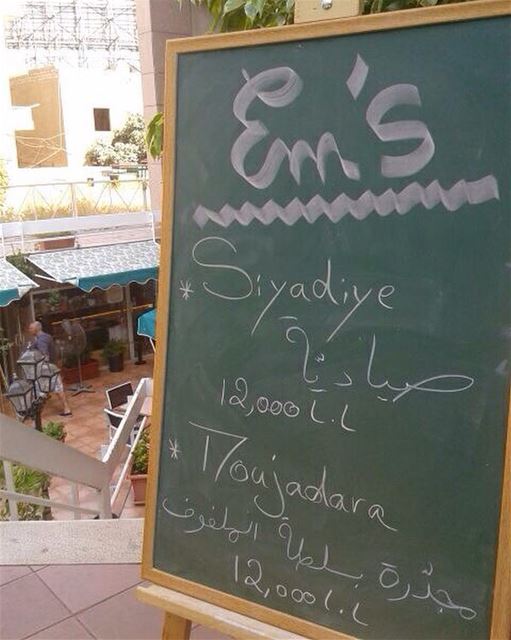 Em's
* Siyadiye
صيادّية
12,000 L.L
* Moujadara
مجدّرة بسلطة الملفوف
12,000 L.L